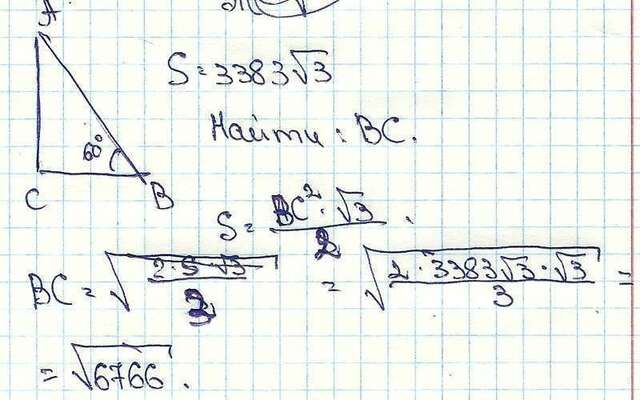 A
S = 3383√3
60°
Найти: BC.
C
B
S = BC²·√3 / 2.
BC = √(2·S·√3 / 3) = √(2·3383√3·√3 / 3) =
= √6766.